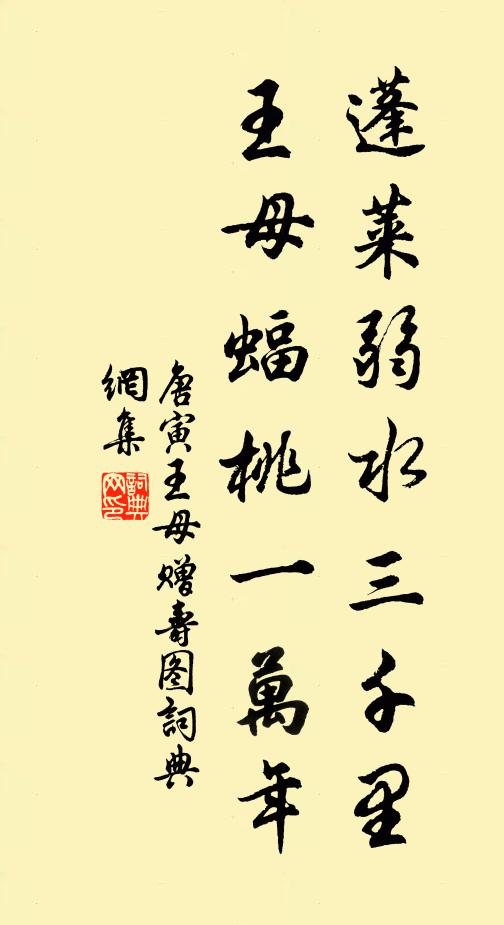 蓬萊弱水三千里
王母蝠桃一萬年
唐寅王母赠壽图詞典
網集
詞典网印